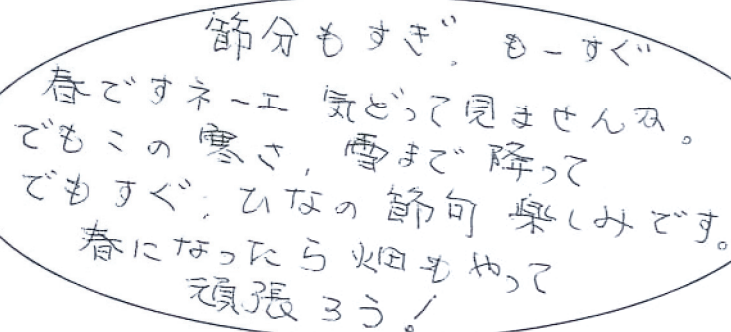 節分もすぎ、もーすぐ
春ですネーエ 気どって見ませんか。
でもこの寒さ、雪まで降って
でもすぐ、ひなの節句 楽しみです。
春になったら畑もやって
頑張ろう!